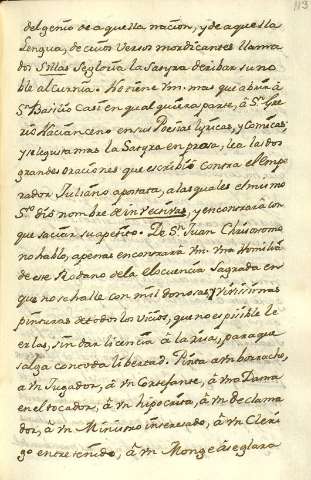 113
del genio de aquella nacion, y de aquella
Lengua, de cuios versos mordicantes llama
dos Sillas se gloria la Satyra deribar su no
ble alcurnia. No tiene Vm. mas que abrir à
Sn. Basilio casi en qualquiera parte, à Sn. Gre
rio Nacianceno en sus Poesias lyricas, y Comicas,
y si le gusta mas la Satyra en prosa, lea las dos
grandes oraciones que escribió contra el Empe
rador Juliano apostata, a las quales el mismo
Sto. dió nombre de invecivas, y encontrará con
que saciar su apetito. De Sn. Juan Chrisostomo
no hablo, apenas encontrará Vm. Vna Homilia
de ese Rodano de la elocuencia Sagrada en
que no se halle con mil donosas, y vivisimas
pinturas de todos los vicios, que no es posible le
erlas, sin dar licencia à la risa, para que
salga con toda libertad. Pinta à vn borracho,
à vn Jugador, à vn Cortesante, à vna Dama
en el tocador, à vn hipocrita, à vn declama
dor, à vn Ministro interesado, à vn Cleri
go entretenido, à vn Monge àseglara